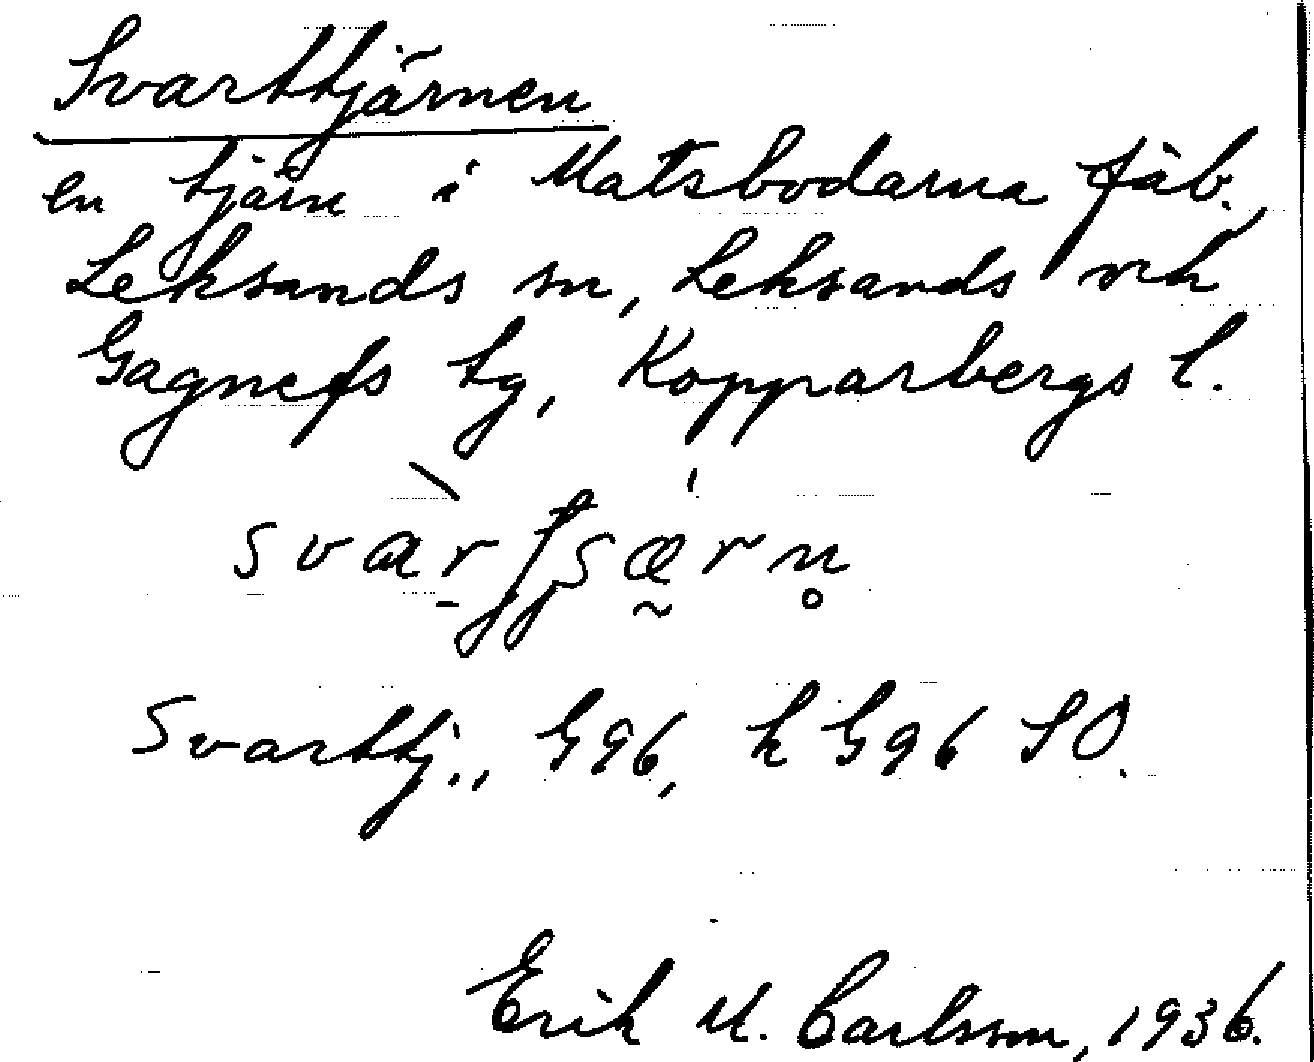 Svarttjärnen
en tjärn i Matsbodarna fäb.,
Leksands sn, Leksands och
Gagnefs tg, Kopparbergs l.
Svarttj., G96, k G96 SO.
Erik M. Carlsson, 1936.